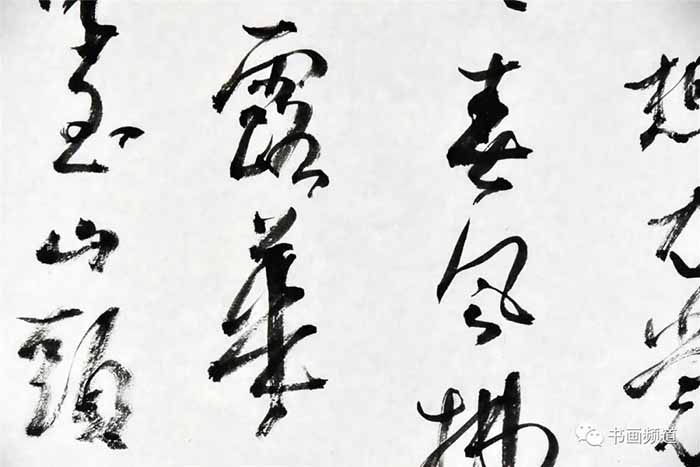 想衣裳
春风拂
露華
玉山頭
书画频道